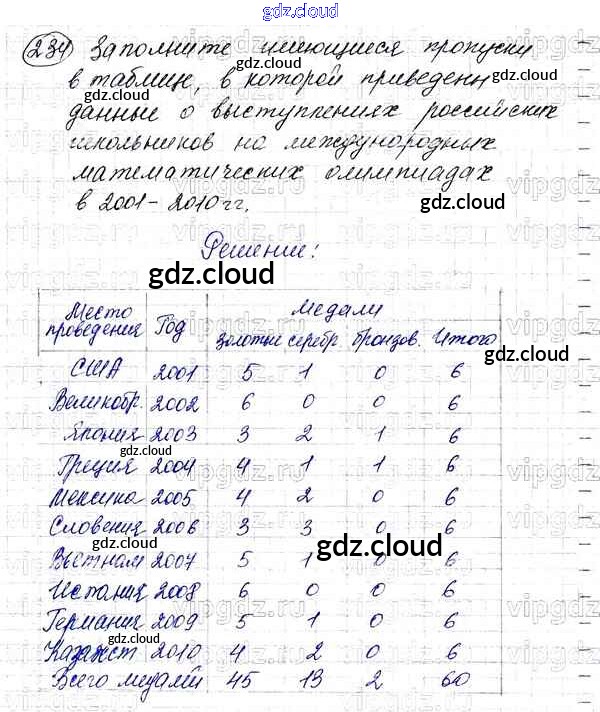 gdz.cloud
234 Заполните имеющиеся пропуски
в таблице, в которой приведены
данные о выступлениях российских
школьников на международных
математических олимпиадах
в 2001-2010 гг.
Решение:
Место проведения Год Медали
золотые серебр. бронзов. Итого
США 2001 5 1 0 6
Великобр. 2002 6 0 0 6
Япония 2003 3 2 1 6
Греция 2004 4 1 1 6
Мексика 2005 4 2 0 6
Словения 2006 3 3 0 6
Вьетнам 2007 5 1 0 6
Испания 2008 6 0 0 6
Германия 2009 5 1 0 6
Казахст 2010 4 2 0 6
Всего медалей 45 13 2 60
gdz.cloud